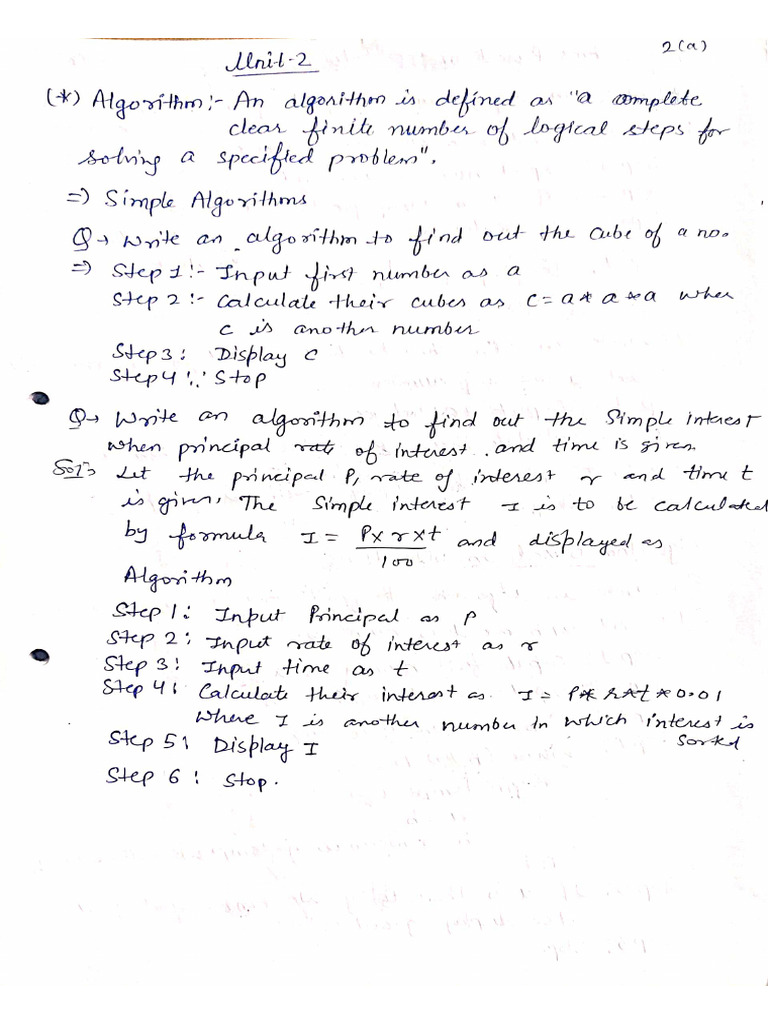 2(a)
Unit-2
(*) Algorithm:- An algorithm is defined as "a complete
clear finite number of logical steps for
solving a specified problem".
=) Simple Algorithms
Q→ Write an algorithm to find out the cube of a no.
=) Step 1:- Input first number as a
Step 2:- Calculate their cubes as c = a * a * a when
c is another number
Step 3: Display c
Step 4: Stop
Q→ Write an algorithm to find out the simple interest
when principal rate of interest, and time is given.
Sol: Let the principal P, rate of interest r and time t
is given. The simple interest I is to be calculated
by formula I = P x r x t / 100 and displayed as
Algorithm
Step 1: Input Principal as P
Step 2: Input rate of interest as r
Step 3: Input time as t
Step 4: Calculate their interest as I = P * r * t * 0.01
Where I is another number in which interest is
sorted
Step 5: Display I
Step 6: Stop.